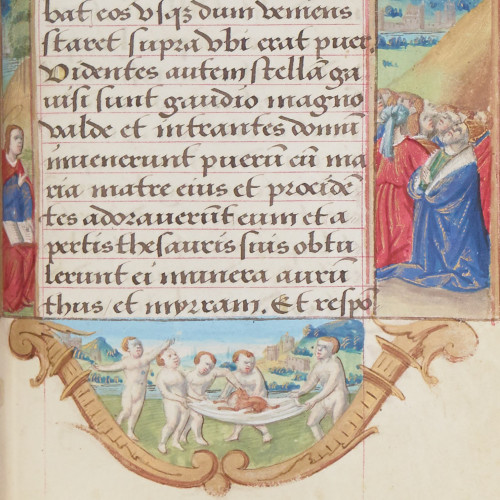 bat eos vsqz dum veniens
staret supra vbi erat puer.
Videntes autem stellā ga
uisi sunt gaudio magno
valde et intrantes domū
inuenerunt puerū cū ma
ria matre eius et prociden̄
tes adorauerūt eum et a
pertis thesauris suis obtu
lerunt ei munera aurū
thus et myrram. Et respō